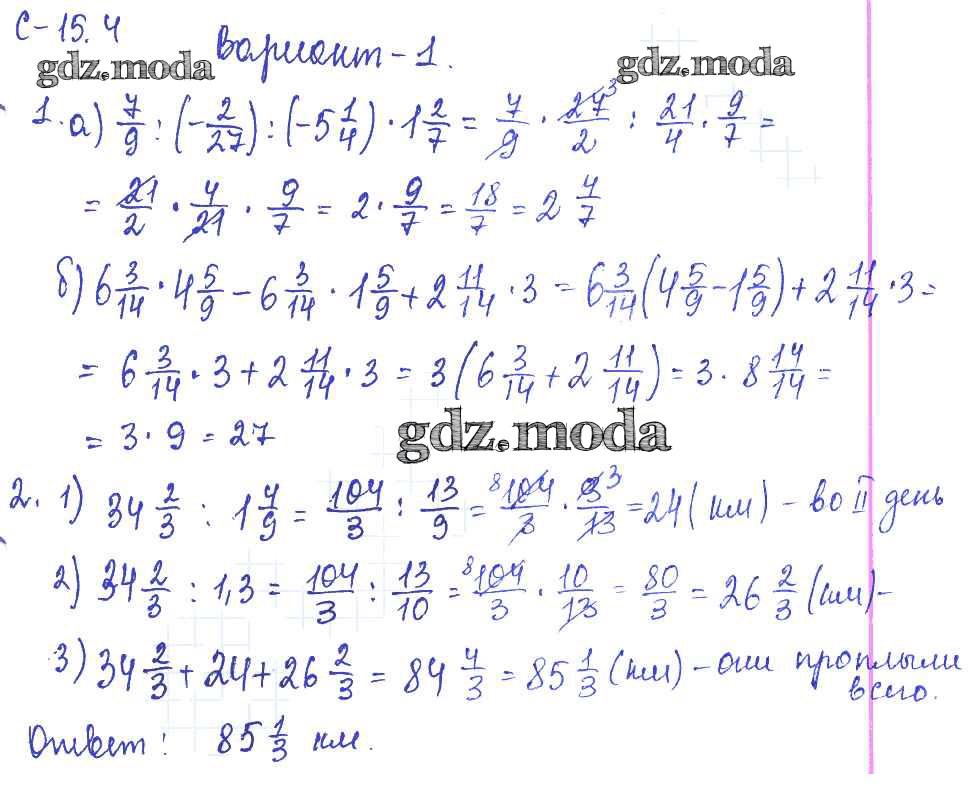 С-15.4
Вариант-1.
gdz.moda gdz.moda
1. а) 7/9 : (-2/27) : (-5 1/4) · 1 2/7 = 7/9 · 27/2 3 : 21/4 · 9/7 =
= 21/2 · 4/21 · 9/7 = 2 · 9/7 = 18/7 = 2 4/7
б) 6 3/14 · 4 5/9 - 6 3/14 · 1 5/9 + 2 11/14 · 3 = 6 3/14 (4 5/9 - 1 5/9) + 2 11/14 · 3 =
= 6 3/14 · 3 + 2 11/14 · 3 = 3 (6 3/14 + 2 11/14) = 3 · 8 14/14 =
= 3 · 9 = 27
gdz.moda
2. 1) 34 2/3 : 1 4/9 = 104/3 : 13/9 = 8 104/3 · 9/13 3 = 24 (км) - во II день
2) 34 2/3 : 1,3 = 104/3 : 13/10 = 8 104/3 · 10/13 = 80/3 = 26 2/3 (км) -
3) 34 2/3 + 24 + 26 2/3 = 84 4/3 = 85 1/3 (км) - они проплыли
всего.
Ответ: 85 1/3 км.